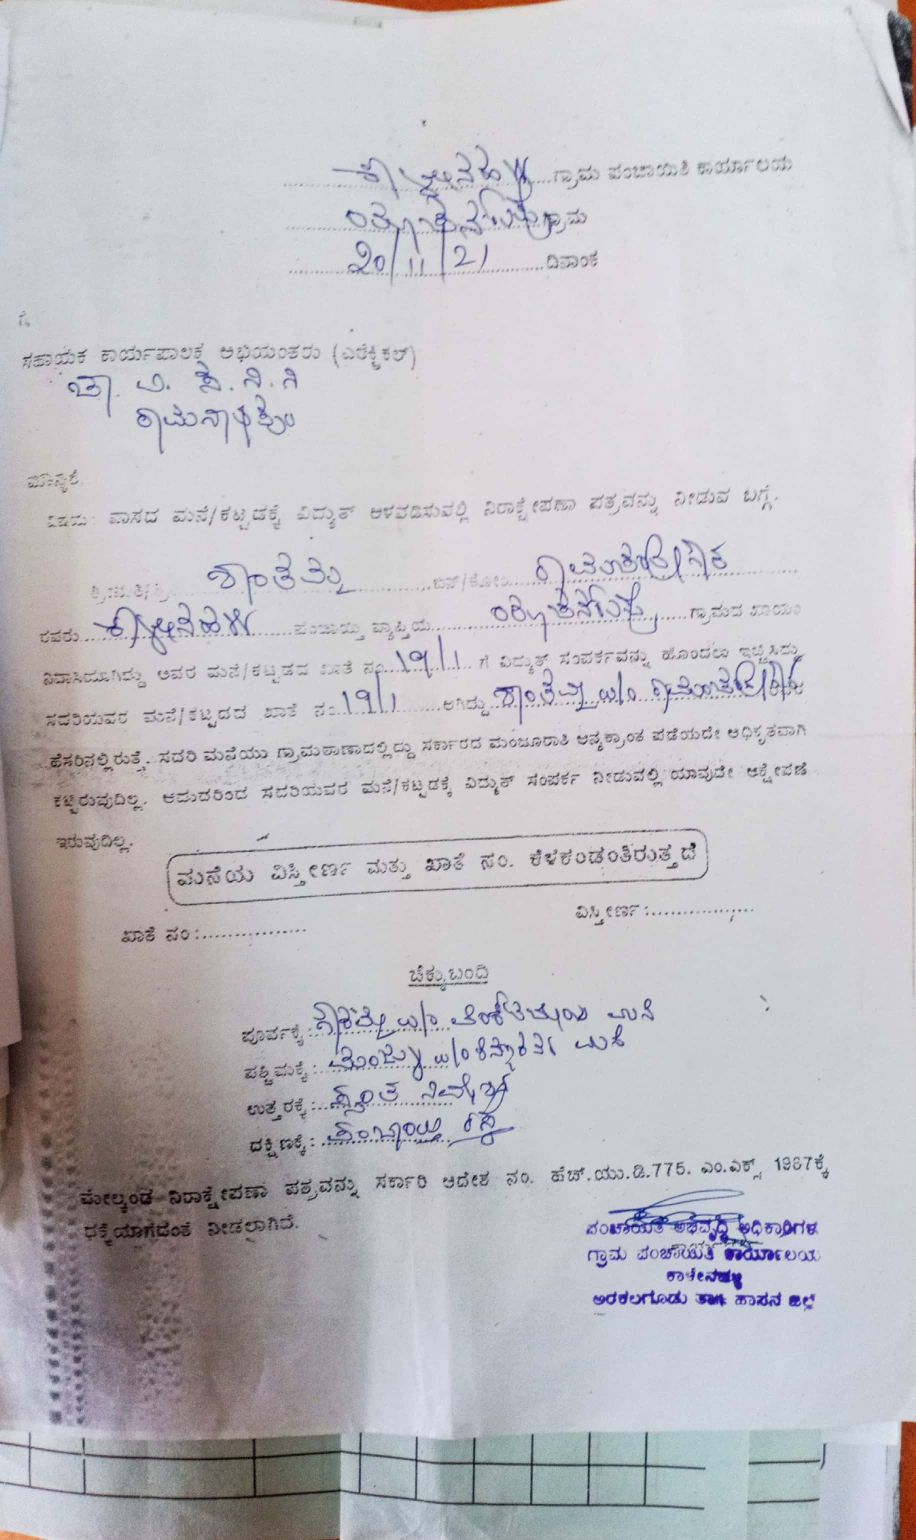 ಕಾಳೇನಹಳ್ಳಿ ಗ್ರಾಮ ಪಂಚಾಯಿತಿ ಕಾರ್ಯಾಲಯ
ಗ್ರಾಮ
20/11/21 ದಿನಾಂಕ
ಗೆ,
ಸಹಾಯಕ ಕಾರ್ಯಪಾಲಕ ಅಭಿಯಂತರು (ಎಲೆಕ್ಟ್ರಿಕಲ್)
ಚಾ. ವಿ. ಸ. ನಿ. ನಿ
ರಾಮನಾಥಪುರ
ಮಾನ್ಯರೆ,
ವಿಷಯ: ವಾಸದ ಮನೆ/ಕಟ್ಟಡಕ್ಕೆ ವಿದ್ಯುತ್ ಅಳವಡಿಸುವಲ್ಲಿ ನಿರಾಕ್ಷೇಪಣಾ ಪತ್ರವನ್ನು ನೀಡುವ ಬಗ್ಗೆ.
ಶ್ರೀಮತಿ/ಶ್ರೀ ಶಾಂತಮ್ಮ ಬಿನ್/ಕೋಂ
ರವರು ಕಾಳೇನಹಳ್ಳಿ ಪಂಚಾಯ್ತಿ ವ್ಯಾಪ್ತಿಯ ಗ್ರಾಮದ ಖಾಯಂ
ನಿವಾಸಿಯಾಗಿದ್ದು ಅವರ ಮನೆ/ಕಟ್ಟಡದ ಖಾತೆ ನಂ 19/1 ಗೆ ವಿದ್ಯುತ್ ಸಂಪರ್ಕವನ್ನು ಹೊಂದಲು ಇಚ್ಛಿಸಿದ್ದು
ಸದರಿಯವರ ಮನೆ/ಕಟ್ಟಡದ ಖಾತೆ ನಂ 19/1 ಆಗಿದ್ದು ಶಾಂತಮ್ಮ w/o
ಹೆಸರಿನಲ್ಲಿರುತ್ತೆ. ಸದರಿ ಮನೆಯು ಗ್ರಾಮಠಾಣಾದಲ್ಲಿದ್ದು ಸರ್ಕಾರದ ಮಂಜೂರಾತಿ ಅನ್ಯಕ್ರಾಂತ ಪಡೆಯದೇ ಅಧಿಕೃತವಾಗಿ
ಕಟ್ಟಿರುವುದಿಲ್ಲ. ಆದುದರಿಂದ ಸದರಿಯವರ ಮನೆ/ಕಟ್ಟಡಕ್ಕೆ ವಿದ್ಯುತ್ ಸಂಪರ್ಕ ನೀಡುವಲ್ಲಿ ಯಾವುದೇ ಆಕ್ಷೇಪಣೆ
ಇರುವುದಿಲ್ಲ.
ಮನೆಯ ವಿಸ್ತೀರ್ಣ ಮತ್ತು ಖಾತೆ ನಂ. ಕೆಳಕಂಡಂತಿರುತ್ತದೆ
ವಿಸ್ತೀರ್ಣ :
ಖಾತೆ ನಂ :
ಚೆಕ್ಕುಬಂದಿ
ಪೂರ್ವಕ್ಕೆ : w/o ಮನೆ
ಪಶ್ಚಿಮಕ್ಕೆ : ಮಂಜು w/o ಮನೆ
ಉತ್ತರಕ್ಕೆ : ಸ್ವಂತ ನಿವೇಶನ
ದಕ್ಷಿಣಕ್ಕೆ : ಪಂಚಾಯ್ತಿ ರಸ್ತೆ
ಮೇಲ್ಕಂಡ ನಿರಾಕ್ಷೇಪಣಾ ಪತ್ರವನ್ನು ಸರ್ಕಾರಿ ಆದೇಶ ನಂ. ಹೆಚ್.ಯು.ಡಿ.775. ಎಂ.ಎಕ್ಸ್ 1987ಕ್ಕೆ
ಧಕ್ಕೆಯಾಗದಂತೆ ನೀಡಲಾಗಿದೆ.
ಪಂಚಾಯಿತಿ ಅಭಿವೃದ್ಧಿ ಅಧಿಕಾರಿಗಳು
ಗ್ರಾಮ ಪಂಚಾಯಿತಿ ಕಾರ್ಯಾಲಯ
ಕಾಳೇನಹಳ್ಳಿ
ಅರಕಲಗೂಡು ತಾ॥ ಹಾಸನ ಜಿಲ್ಲೆ